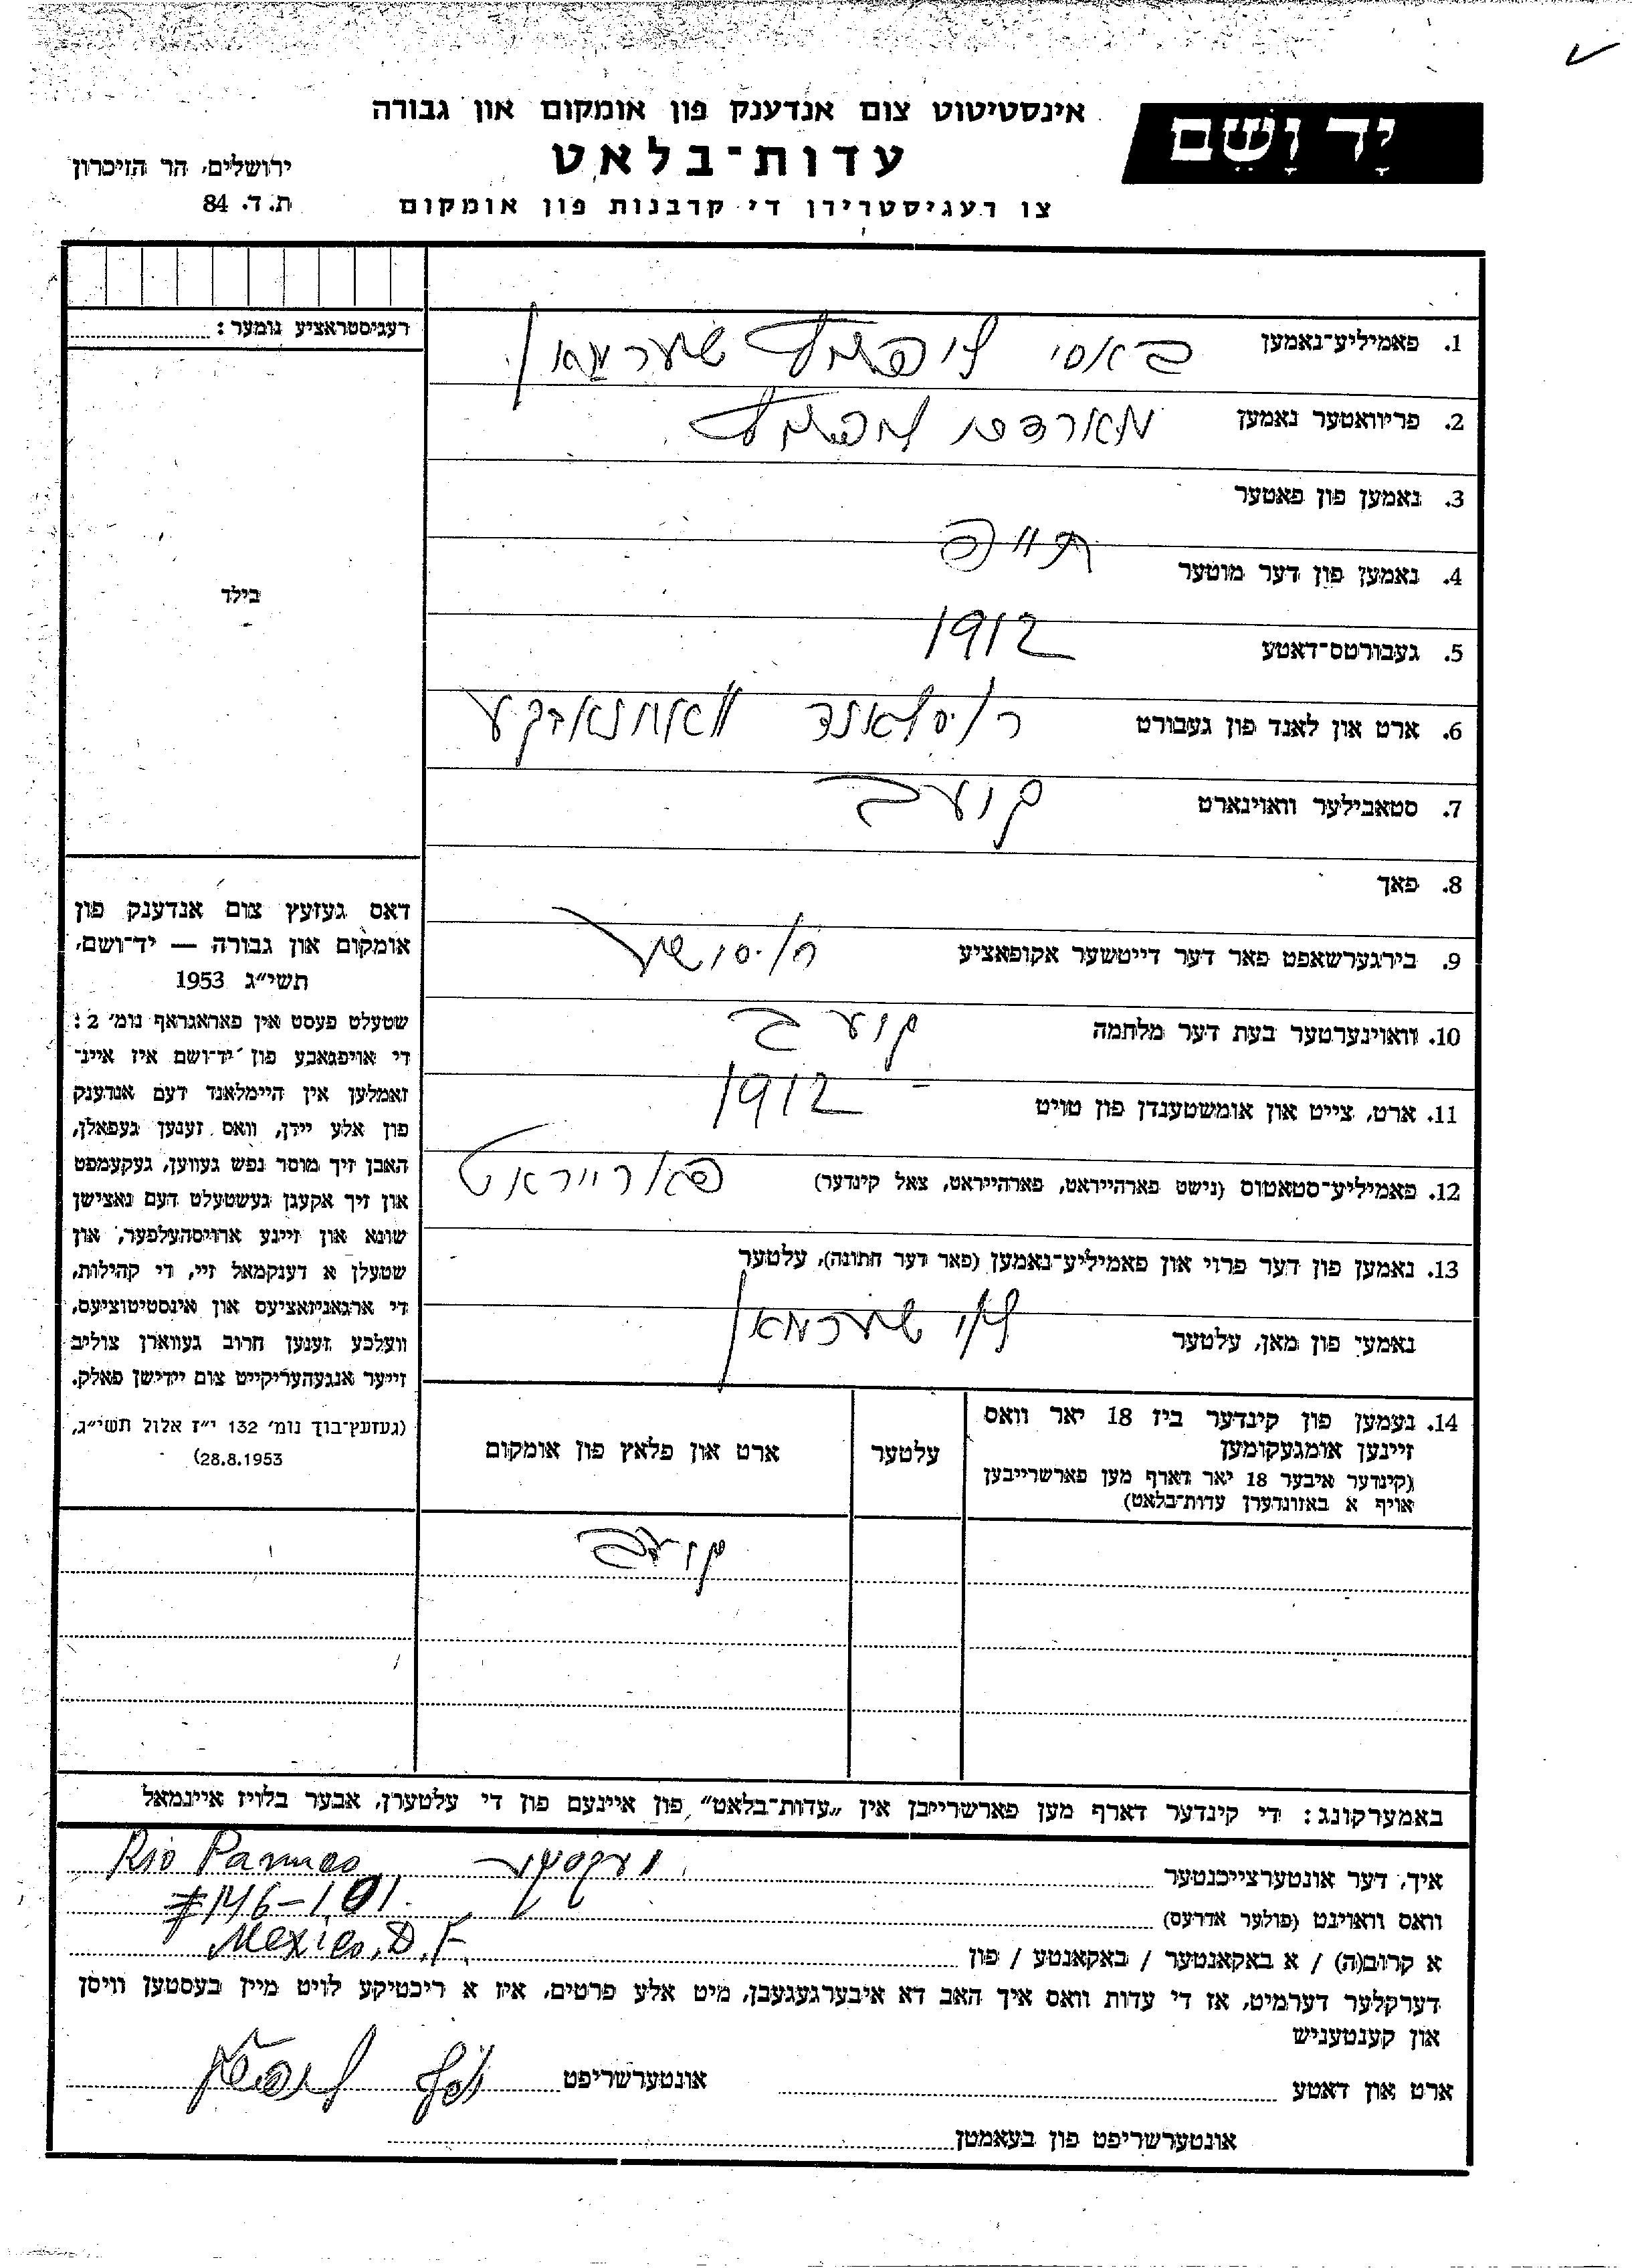 יָד וָשֵׁם
אינסטיטוט צום אנדענק פון אומקום און גבורה
עדות־בלאט
צו רעגיסטרירן די קרבנות פון אומקום
ירושלים, הר הזיכרון
ת. ד. 84
רעגיסטראציע נומער:
בילד
1. פאמיליע־נאמען באסי ליפשיץ שערמאן
2. פריוואטער נאמען
3. נאמען פון פאטער
4. נאמען פון דער מוטער חייה
5. געבורטס־דאטע 1912
6. ארט און לאנד פון געבורט רוסלאנד
7. סטאבילער וואוינארט קועב
8. פאך
9. בירגערשאפט פאר דער דייטשער אקופאציע רוסישע
10. וואוינערטער בעת דער מלחמה קועב
11. ארט, צייט און אומשטענדן פון טויט 1912
12. פאמיליע־סטאטוס (נישט פארהייראט, פארהייראט, צאל קינדער) פארייראט
13. נאמען פון דער פרוי און פאמיליע־נאמען (פאר דער חתונה), עלטער
נאמעי פון מאן, עלטער שערמאן
14. נעמען פון קינדער ביז 18 יאר וואס
זיינען אומגעקומען
(קינדער איבער 18 יאר דארף מען פארשרייבען
אויף א באזונדערן עדות־בלאט)
עלטער
ארט און פלאץ פון אומקום
קועב
דאס געזעץ צום אנדענק פון
אומקום און גבורה — יד־ושם,
תשי״ג 1953
שטעלט פעסט אין פאראגראף נומ׳ 2:
די אויפגאבע פון יד־ושם איז איינ־
זאמלען אין היימלאנד דעם אנדענק
פון אלע יידן, וואס זענען געפאלן,
האבן זיך מוסר נפש געווען, געקעמפט
און זיך אקעגן געשטעלט דעם נאצישן
שונא און זיינע ארויסהעלפער, און
שטעלן א דענקמאל זיי, די קהילות,
די ארגאניזאציעס און אינסטיטוציעס,
וועלכע זענען חרוב געווארן צוליב
זייער אנגעהעריקייט צום יידישן פאלק.
(געזעץ־בוך נומ׳ 132 י״ז אלול תשי״ג,
28.8.1953)
באמערקונג: די קינדער דארף מען פארשרייבן אין „עדות־בלאט״ פון איינעם פון די עלטערן, אבער בלויז איינמאל
איך, דער אונטערצייכנטער Rio Panuco
וואס וואוינט (פולער אדרעס) #146-101
א קרוב(ה) / א באקאנטער / באקאנטע / פון Mexico, D.F.
דערקלער דערמיט, אז די עדות וואס איך האב דא איבערגעגעבן, מיט אלע פרטים, איז א ריכטיקע לויט מיין בעסטען וויסן
און קענטעניש
ארט און דאטע אונטערשריפט
אונטערשריפט פון בעאמטן